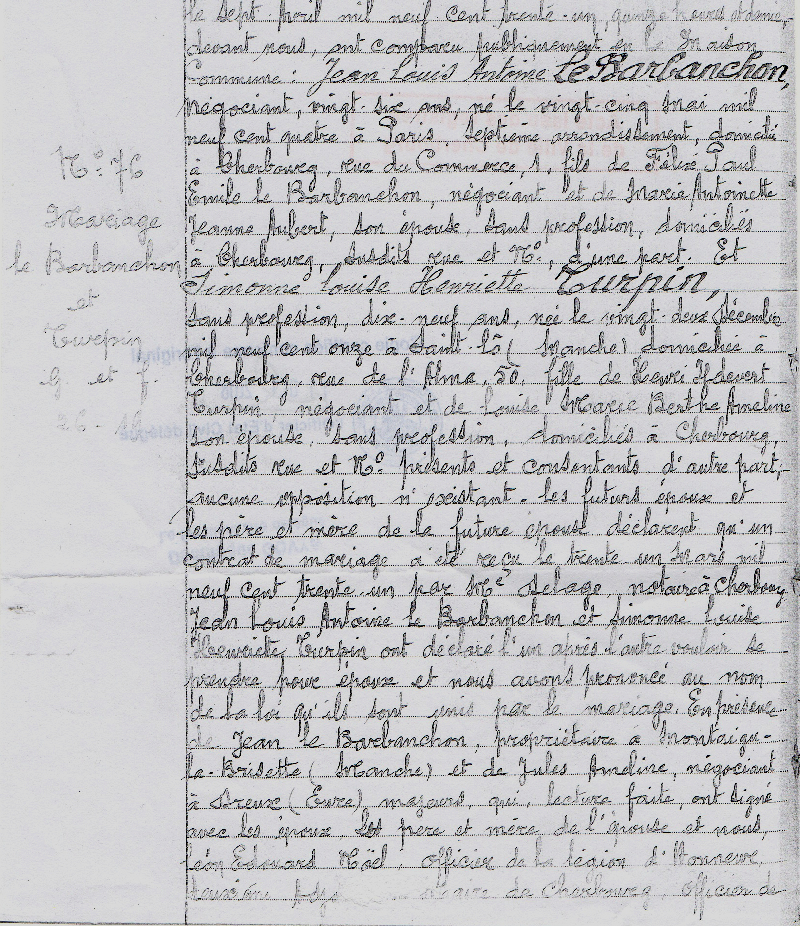 le sept Avril mil neuf cent trente-un, quinze heures et demie,
devant nous, ont comparu publiquement en la Maison
Commune : Jean Louis Antoine Le Barbanchon,
négociant, vingt-six ans, né le vingt-cinq Mai mil
neuf cent quatre à Paris, septième arrondissement, domicilié
à Cherbourg, rue du Commerce, 1, fils de Félix Paul
Emile le Barbanchon, négociant et de Marie Antoinette
Jeanne Aubert, son épouse, sans profession, domiciliés
à Cherbourg, susdits rue et N°, d'une part. Et
Simonne Louise Henriette Turpin,
sans profession, dix-neuf ans, née le vingt-deux Décembre
mil neuf cent onze à Saint-Lô (Manche) domiciliée à
Cherbourg, rue de l'Alma, 50, fille de Henri
Turpin négociant et de Louise Marie Berthe Ameline
son épouse, sans profession, domiciliés à Cherbourg,
susdits rue et N° présents et consentants d'autre part,-
aucune opposition n'existant. les futurs époux et
les père et mère de la future épouse déclarent qu'un
contrat de mariage a été reçu le trente un Mars mil
neuf cent trente-un par Me notaire à Cherbourg
Jean Louis Antoine le Barbanchon et Simonne Louise
Henriette Turpin ont déclaré l'un après l'autre vouloir se
prendre pour époux et nous avons prononcé au nom
de la loi qu'ils sont unis par le mariage. En présence
de Jean le Barbanchon, propriétaire à Montaigu-
la-Brisette (Manche) et de Jules Ameline, négociant
à Breux (Eure) majeurs, qui, lecture faite, ont signé
avec les époux les père et mère de l'épouse et nous,
Léon Edouard Noël, officier de la légion d'Honneur,
Maire de Cherbourg, Officier de
N° 76
Mariage
le Barbanchon
et
Turpin
G. et f.